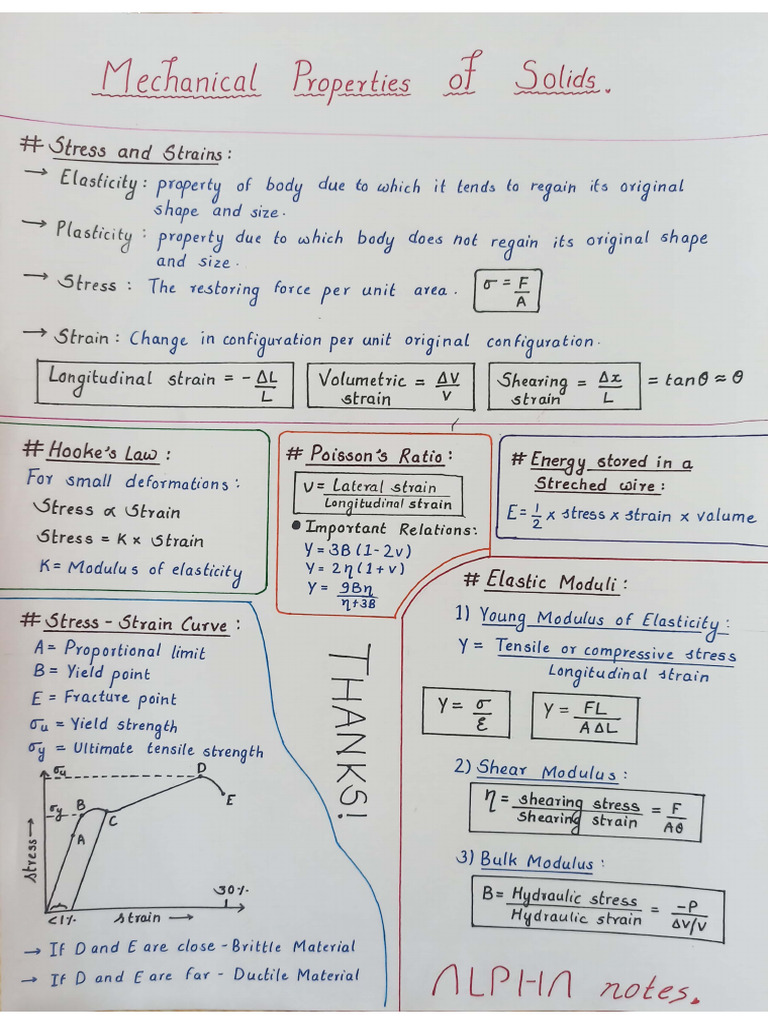 Mechanical Properties of Solids.
# Stress and Strains:
→ Elasticity: property of body due to which it tends to regain its original
shape and size.
→ Plasticity: property due to which body does not regain its original shape
and size.
→ Stress: The restoring force per unit area. σ = F/A
→ Strain: Change in configuration per unit original configuration.
Longitudinal strain = -ΔL/L
Volumetric strain = ΔV/V
Shearing strain = Δx/L = tanθ ≈ θ
# Hooke's Law:
For small deformations:
Stress ∝ Strain
Stress = K × Strain
K = Modulus of elasticity
# Poisson's Ratio:
ν = Lateral strain/Longitudinal strain
• Important Relations:
Y = 3B (1-2ν)
Y = 2η (1+ν)
Y = 9Bη/η+3B
# Energy stored in a
Streched wire:
E = 1/2 × stress × strain × volume
# Stress - Strain Curve:
A = Proportional limit
B = Yield point
E = Fracture point
σu = Yield strength
σy = Ultimate tensile strength
σu
D
E
σy
B
C
A
Stress →
30%.
<1%.
strain →
→ If D and E are close - Brittle Material
→ If D and E are far - Ductile Material
THANKS!
# Elastic Moduli:
1) Young Modulus of Elasticity:
Y = Tensile or compressive stress/Longitudinal strain
Y = σ/ε
Y = FL/AΔL
2) Shear Modulus:
η = shearing stress/Shearing strain = F/Aθ
3) Bulk Modulus:
B = Hydraulic stress/Hydraulic strain = -P/ΔV/V
ALPHA notes.